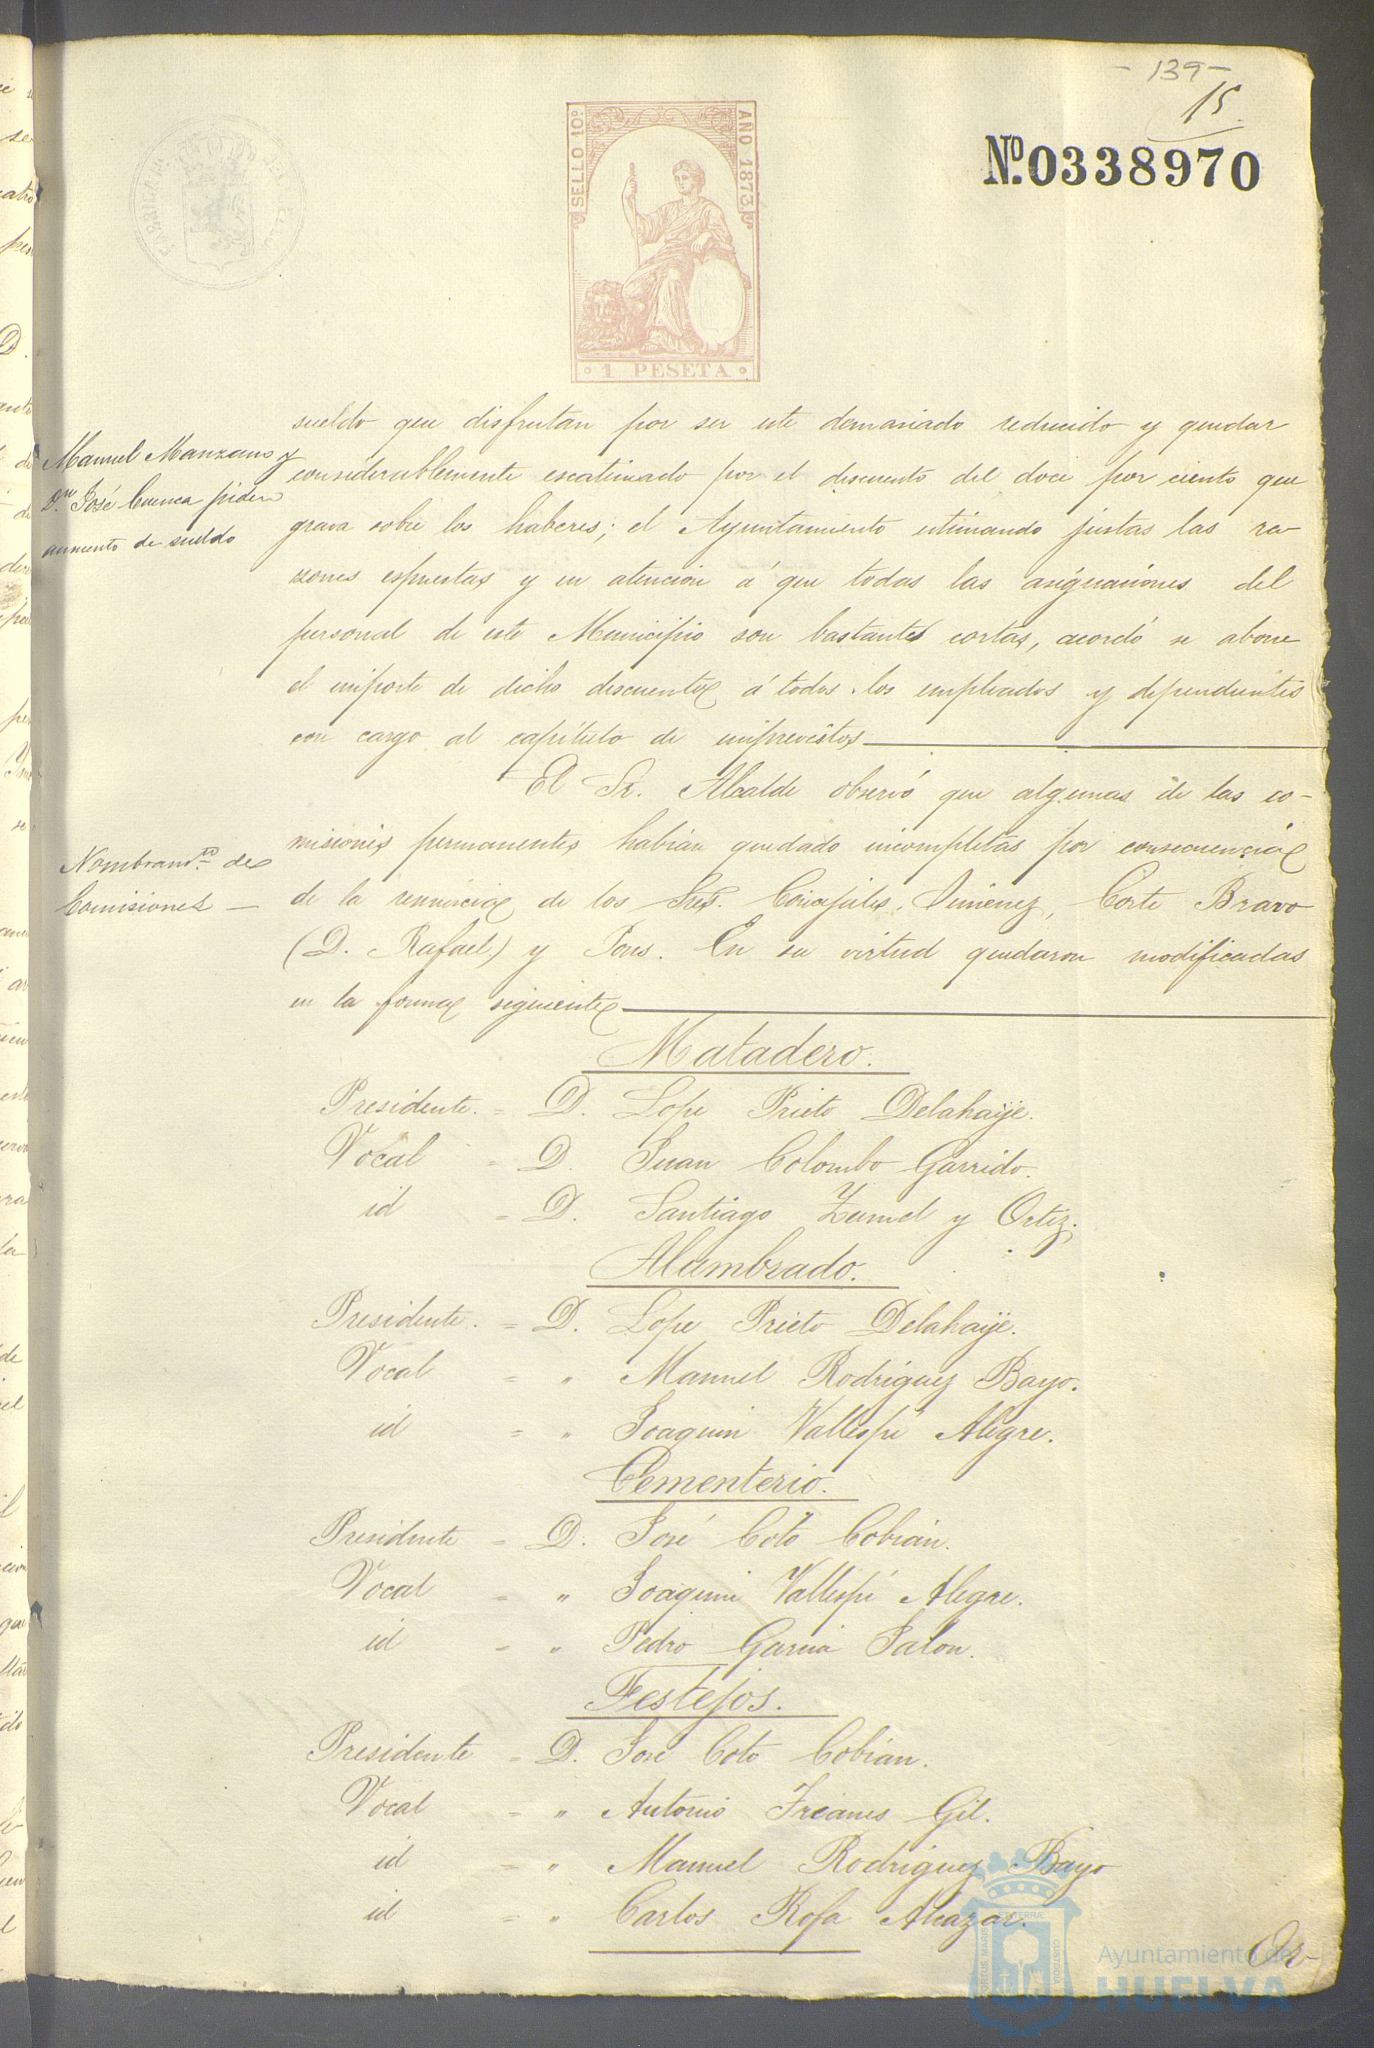 - 139 -
15
Nº. 0338970
SELLO 10º
AÑO 1873
1 PESETA
Manuel Manzano y
Dn. José Cuenca piden
aumento de sueldo
sueldo que disfrutan por ser este demasiado reducido y quedar
considerablemente escatimado por el descuento del doce por ciento que
grava sobre los haberes; el Ayuntamiento estimando justas las ra-
zones espuestas, y en atencion á que todas las asignaciones del
personal de este Municipio son bastantes cortas, acordó se abone
el importe de dicho descuento á todos los empleados y dependientes
con cargo al capítulo de imprevistos
El Sr. Alcalde observó que algunas de las co-
misiones permanentes habian quedado incompletas por consecuencia
Nombramto. de
Comisiones -
de la renuncia de los Sres. Concejales, Jimenez, Corte Bravo
(D. Rafael) y Pons. En su virtud quedaron modificadas
en la forma siguiente
Matadero.
Presidente. = D. Lope Prieto Delahaÿe.
Vocal = D. Juan Colombo Garrido.
id = D. Santiago y Ortiz.
Alumbrado.
Presidente. = D. Lope Prieto Delahaÿe.
Vocal = " Manuel Rodriguez Bayo.
id = " Joaquin Vallespí Alegre.
Cementerio.
Presidente = D. José Coto Cobian.
Vocal = " Joaquin Vallespí Alegre.
id = " Pedro Garcia Jalon.
Festejos.
Presidente = D. José Coto Cobian.
Vocal = " Antonio Gil.
id = " Manuel Rodriguez Bayo
id = " Carlos Rofa Alcazar.
Or-
Ayuntamiento de
HUELVA